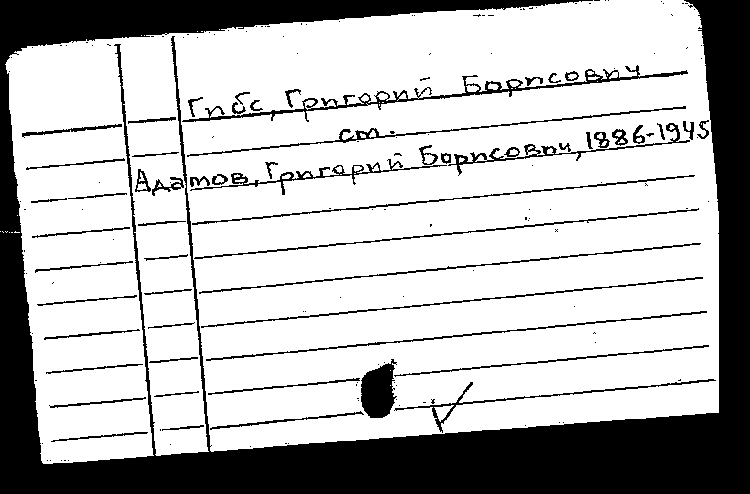 Гибс, Григорий Борисович
см.
Адамов, Григорий Борисович, 1886-1945